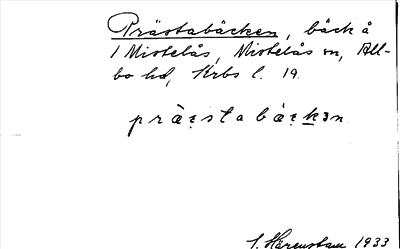 Prästabäcken, bäck å
1 Mistelås, Mistelås sn, All-
bo hd, Krbs l. 19.
prästabäkɜn
S. Härenstam 1933